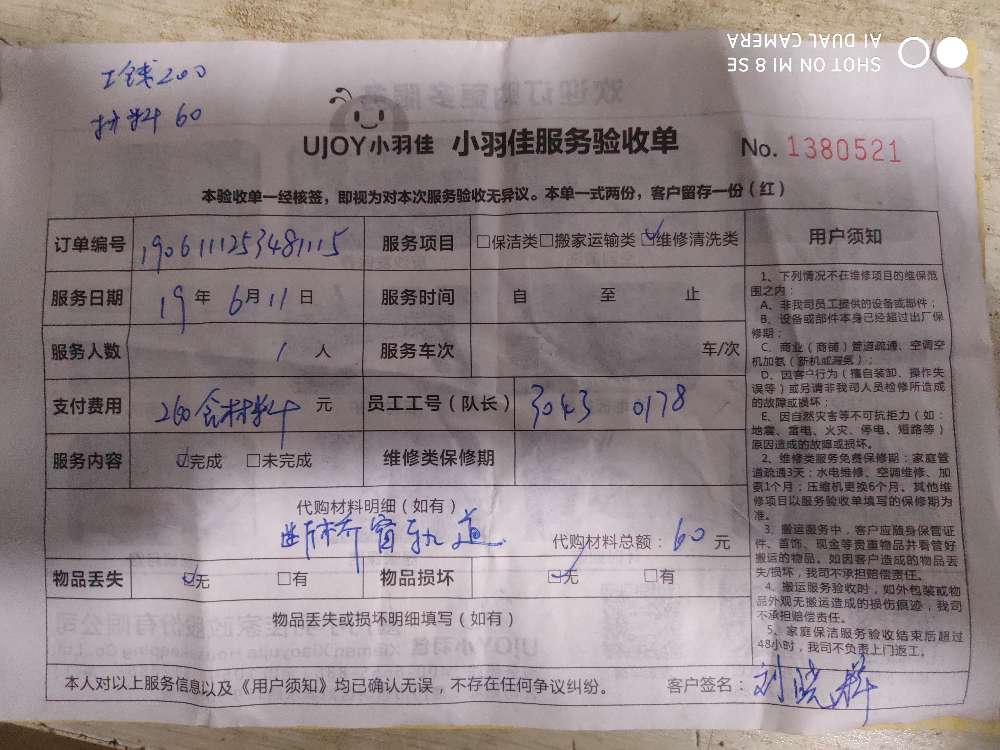 SHOT ON MI 8 SE
AI DUAL CAMERA
工钱200
材料60
UJOY小羽佳 小羽佳服务验收单 No. 1380521
本验收单一经核签，即视为对本次服务验收无异议。本单一式两份，客户留存一份（红）
订单编号 190611125348 1115 服务项目 □保洁类□搬家运输类☑维修清洗类
服务日期 19年6月11日 服务时间 自 至 止
服务人数 1人 服务车次 车/次
支付费用 260含材料 元 员工工号（队长） 3043 0178
服务内容 ☑完成 □未完成 维修类保修期
代购材料明细（如有）
断桥窗轨道 代购材料总额：60元
物品丢失 ☑无 □有 物品损坏 ☑无 □有
物品丢失或损坏明细填写（如有）
本人对以上服务信息以及《用户须知》均已确认无误，不存在任何争议纠纷。 客户签名：刘晓
用户须知
1、下列情况不在维修项目的维保范
围之内：
A、非我司员工提供的设备或部件；
B、设备或部件本身已经超过出厂保
修期；
C、商业（商铺）管道疏通、空调空
机加氨（新机或漏氨）；
D、因客户行为（擅自装卸、操作失
误等）或另请非我司人员检修所造成
的故障或损坏；
E、因自然灾害等不可抗拒力（如：
地震、雷电、火灾、停电、短路等）
原因造成的故障或损坏。
2、维修类服务免费保修期：家庭管
道疏通3天；水电维修、空调维修、加
氨1个月；压缩机更换6个月。其他维
修项目以服务验收单填写的保修期为
准。
3、搬运服务中，客户应随身保管证
件、首饰、现金等贵重物品并看管好
搬运的物品。如因客户造成的物品丢
失/损坏，我司不承担赔偿责任。
4、搬运服务验收时，如外包装或物
品外观无搬运造成的损伤痕迹，我司
不承担赔偿责任。
5、家庭保洁服务验收结束后超过
48小时，我司不负责上门返工。